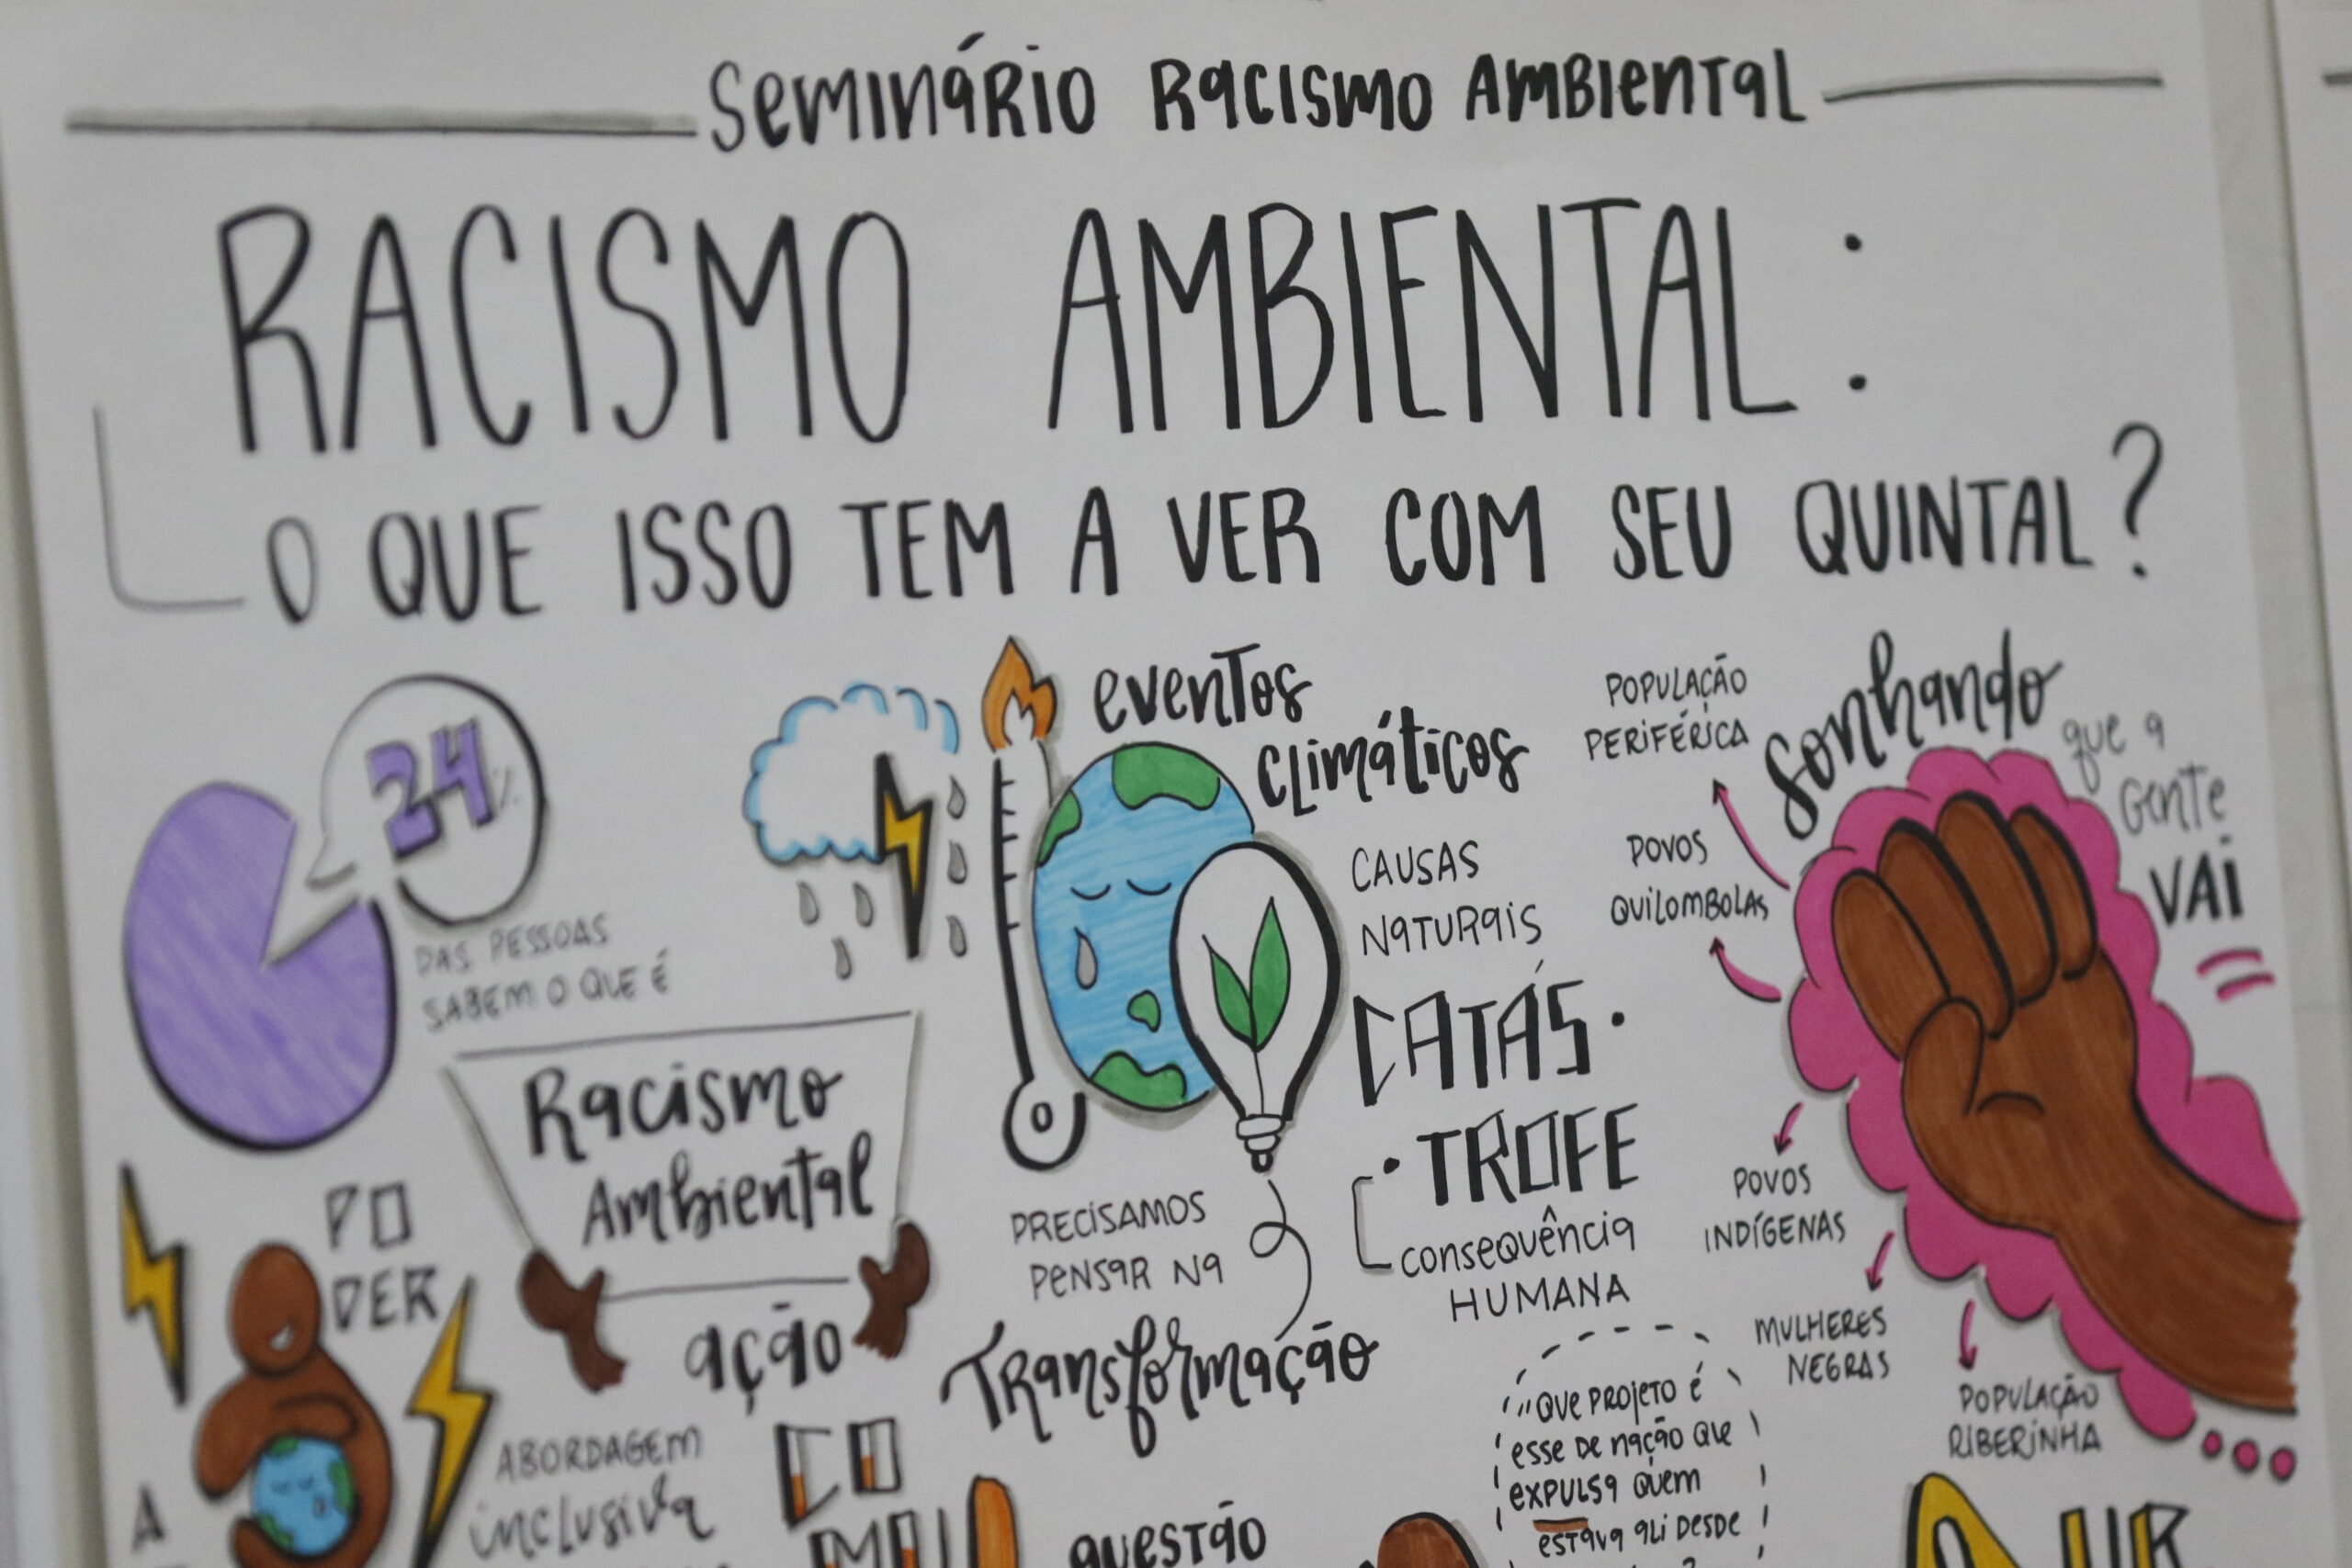 Seminário Racismo Ambiental
RACISMO AMBIENTAL:
O QUE ISSO TEM A VER COM SEU QUINTAL?
24%
DAS PESSOAS
SABEM O QUE É
Racismo
Ambiental
ação
PO
DER
ABORDAGEM
inclusiva
A
eventos
climáticos
CAUSAS
NATURAIS
CATÁS·
·TROFE
consequência
HUMANA
PRECISAMOS
PENSAR NA
Transformação
CO
MU
QUESTÃO
POPULAÇÃO
PERIFÉRICA
POVOS
QUILOMBOLAS
POVOS
INDÍGENAS
MULHERES
NEGRAS
POPULAÇÃO
RIBERINHA
Sonhando
que a
gente
VAI
"QUE PROJETO É
esse DE NAÇÃO QUE
EXPULSA QUEM
ESTAVA ALI DESDE